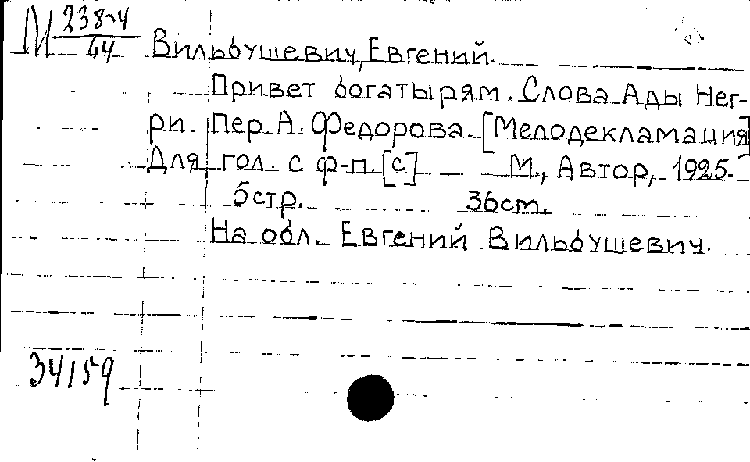 М 238-4
44
Вильбушевич, Евгений.
Привет богатырям. Слова Ады Нег-
ри. Пер. А. Федорова. [Мелодекламация]
Для гол. с ф-п. [c] М., Автор, 1925.
5стр. 36ст.
На обл. Евгений Вильбушевич.
34159